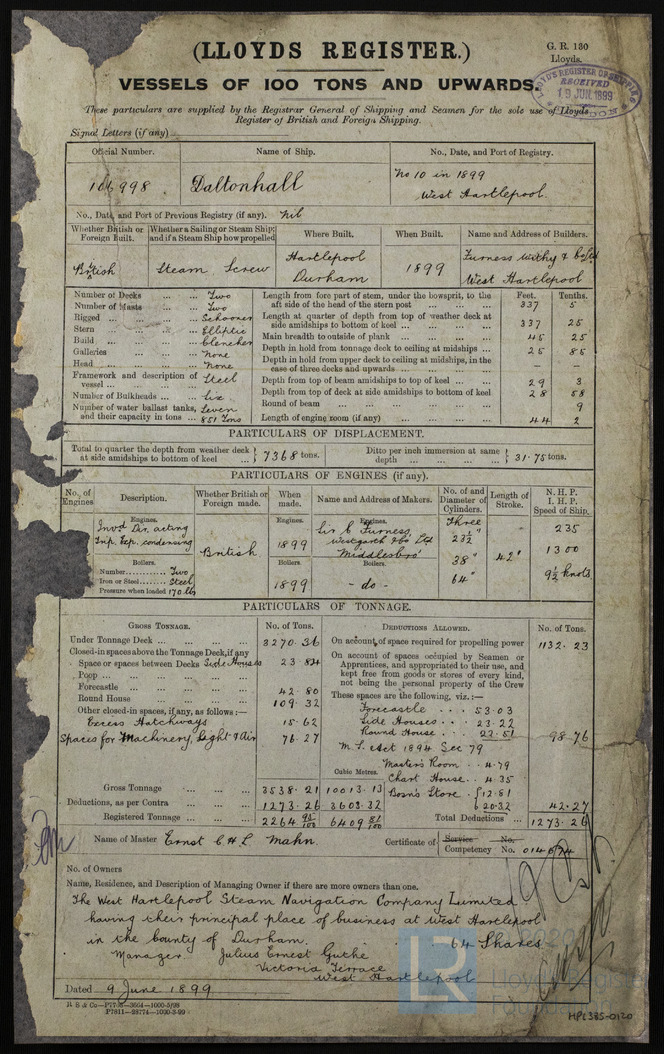 (LLOYDS REGISTER.)
G. R. 130
Lloyds.
VESSELS OF 100 TONS AND UPWARDS.
LLOYD'S REGISTER OF SHIPPING
RECEIVED
19 JUN. 1899
These particulars are supplied by the Registrar General of Shipping and Seamen for the sole use of Lloyds
Register of British and Foreign Shipping.
Signal Letters (if any)
Official Number. Name of Ship. No., Date, and Port of Registry.
106998 Daltonhall No 10 in 1899
West Hartlepool.
No., Date, and Port of Previous Registry (if any). Nil
Whether British or Foreign Built. Whether a Sailing or Steam Ship; and if a Steam Ship how propelled Where Built. When Built. Name and Address of Builders.
British Steam Screw Hartlepool Durham 1899 Furness Withy & Co Ltd West Hartlepool
Number of Decks ... ... Two
Number of Masts ... ... Two
Rigged ... ... ... Schooner
Stern ... ... ... Elliptic
Build ... ... ... Clencher
Galleries ... ... ... None
Head ... ... ... None
Framework and description of vessel ... ... ... Steel
Number of Bulkheads ... Six
Number of water ballast tanks, and their capacity in tons ... Seven 851 Tons
Feet. Tenths.
Length from fore part of stem, under the bowsprit, to the aft side of the head of the stern post 337 5
Length at quarter of depth from top of weather deck at side amidships to bottom of keel 337 25
Main breadth to outside of plank 45 25
Depth in hold from tonnage deck to ceiling at midships 25 85
Depth in hold from upper deck to ceiling at midships, in the case of three decks and upwards – –
Depth from top of beam amidships to top of keel 29 3
Depth from top of deck at side amidships to bottom of keel 28 58
Round of beam 9
Length of engine room (if any) 44 2
PARTICULARS OF DISPLACEMENT.
Total to quarter the depth from weather deck at side amidships to bottom of keel 7368 tons. Ditto per inch immersion at same depth 31.75 tons.
PARTICULARS OF ENGINES (if any).
No. of Engines Description. Whether British or Foreign made. When made. Name and Address of Makers. No. of and Diameter of Cylinders. Length of Stroke. N. H. P. I. H. P. Speed of Ship.
Engines. Engines. Engines.
Invd Dir. acting
Trip. Exp. condensing
British 1899
Sir C Furness,
Westgarth & Co Ltd
Middlesbro'
Three
23½"
38"
64"
42"
235
1300
9½ knots
Boilers. Boilers. Boilers.
Number Two
Iron or Steel Steel
Pressure when loaded 170 lb
1899 - do -
PARTICULARS OF TONNAGE.
GROSS TONNAGE. No. of Tons. DEDUCTIONS ALLOWED. No. of Tons.
Under Tonnage Deck 3270.36
Closed-in spaces above the Tonnage Deck, if any
Space or spaces between Decks Side Houses 23.84
Poop
Forecastle 42.80
Round House 109.32
Other closed-in spaces, if any, as follows:—
Excess Hatchways 15.62
Spaces for Machinery, Light & Air 76.27
Gross Tonnage 3538.21 10013.13
Deductions, as per Contra 1273.26 3603.32
Registered Tonnage 2264 95/100 6409 81/100
Cubic Metres.
On account of space required for propelling power 1132.23
On account of spaces occupied by Seamen or Apprentices, and appropriated to their use, and kept free from goods or stores of every kind, not being the personal property of the Crew
These spaces are the following, viz.:—
Forecastle 53.03
Side Houses 23.22
Round House 22.51
98.76
M. S. Act 1894 Sec 79
Master's Room 4.79
Chart House 4.35
Bosn's Store 12.81
20.32
42.27
Total Deductions 1273.26
Name of Master Ernst C H L Mahn. Certificate of Service No. Competency No.
No. of Owners
Name, Residence, and Description of Managing Owner if there are more owners than one.
The West Hartlepool Steam Navigation Company Limited
having their principal place of business at West Hartlepool
in the county of Durham. 64 Shares
Manager Julius Ernest Guthe
Victoria Terrace
West Hartlepool
Dated 9 June 1899
LR
Lloyd's Register
Foundation
HPL385-0120